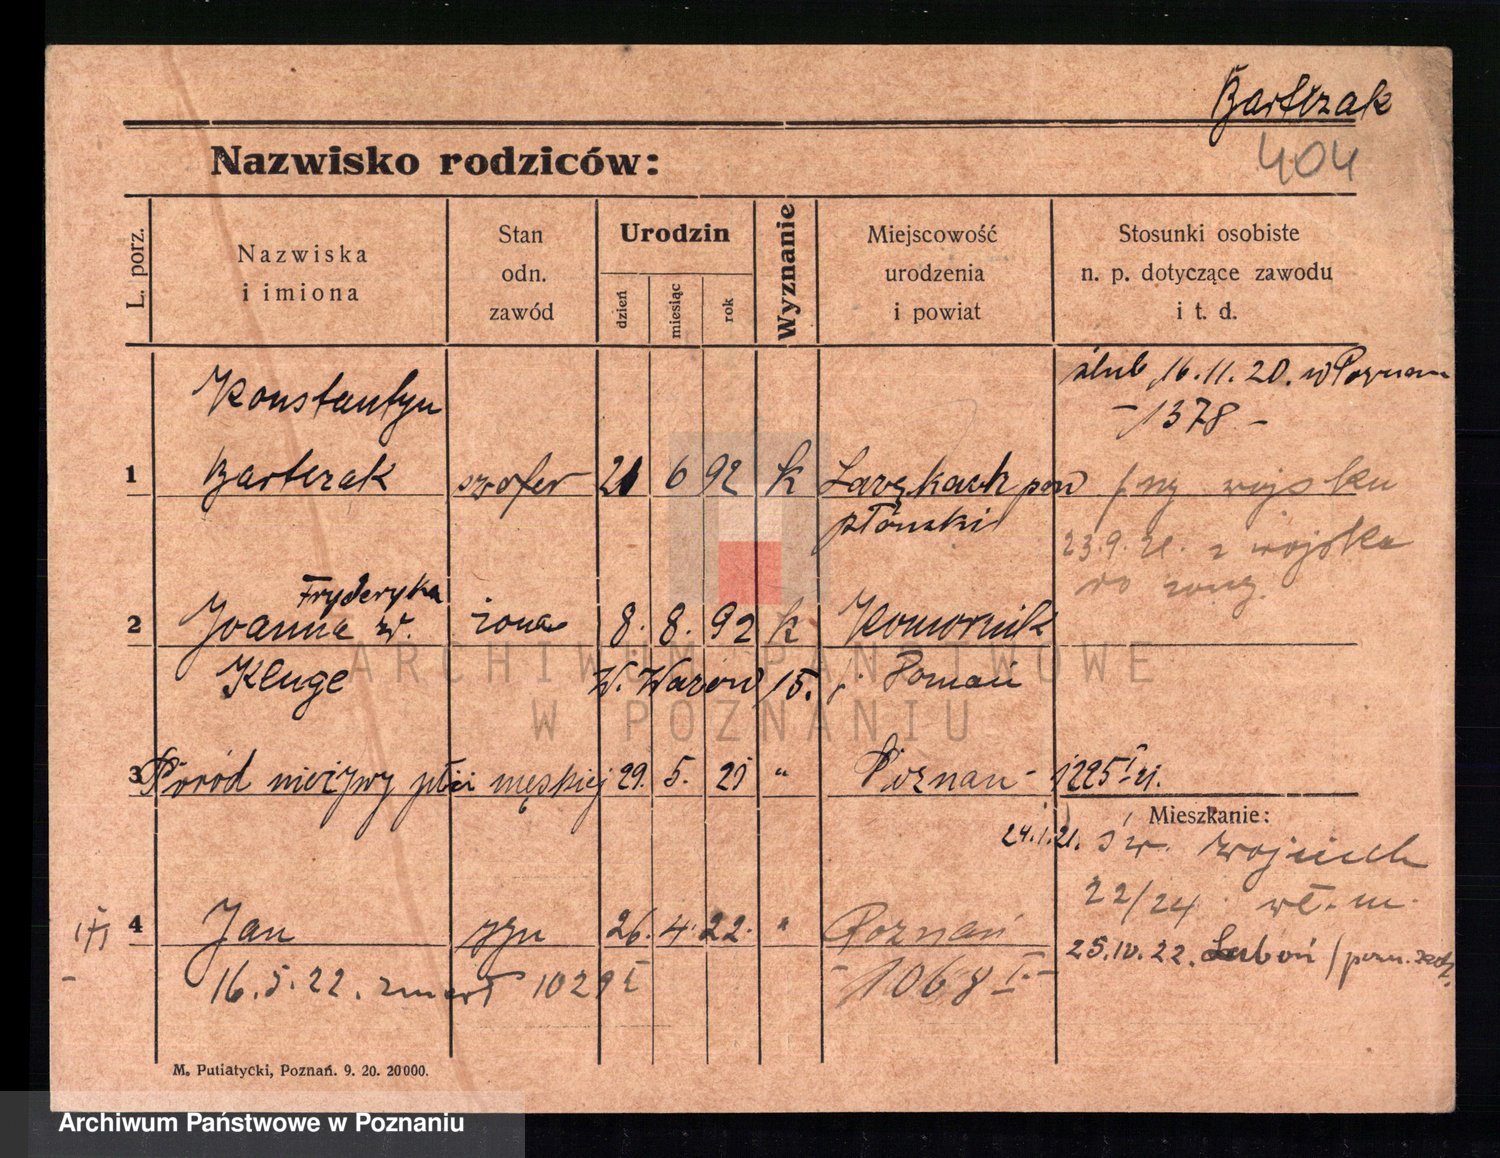 Bartczak
404
Nazwisko rodziców:
L. porz.
Nazwiska
i imiona
Stan
odn.
zawód
Urodzin
dzień
miesiąc
rok
Wyznanie
Miejscowość
urodzenia
i powiat
Stosunki osobiste
n. p. dotyczące zawodu
i t. d.
ślub 16.11.20. w Poznan
-1378-
Konstantyn
1 Bartczak szofer 21 6 92 k pow
płónski
wojsku
23.9.21. z wojska
do żony.
Fryderyka
2 Joanna z. żona 8. 8. 92 k Komornik
Kluge 15. Poznań
3 Poród nieżywy płci męskiej 29. 5. 21 " Poznan - 1225 I 21.
Mieszkanie:
24.1.21. św. Wojciech
22/24 wł. m.
4 Jan syn 26. 4. 22. " Poznań
25.10.22. Luboń / pozn. zach.
16.5.22. zmarł 1029 I
-1068 I.-
M. Putiatycki, Poznań. 9. 20. 20000.
ARCHIWUM PAŃSTWOWE
W POZNANIU
Archiwum Państwowe w Poznaniu